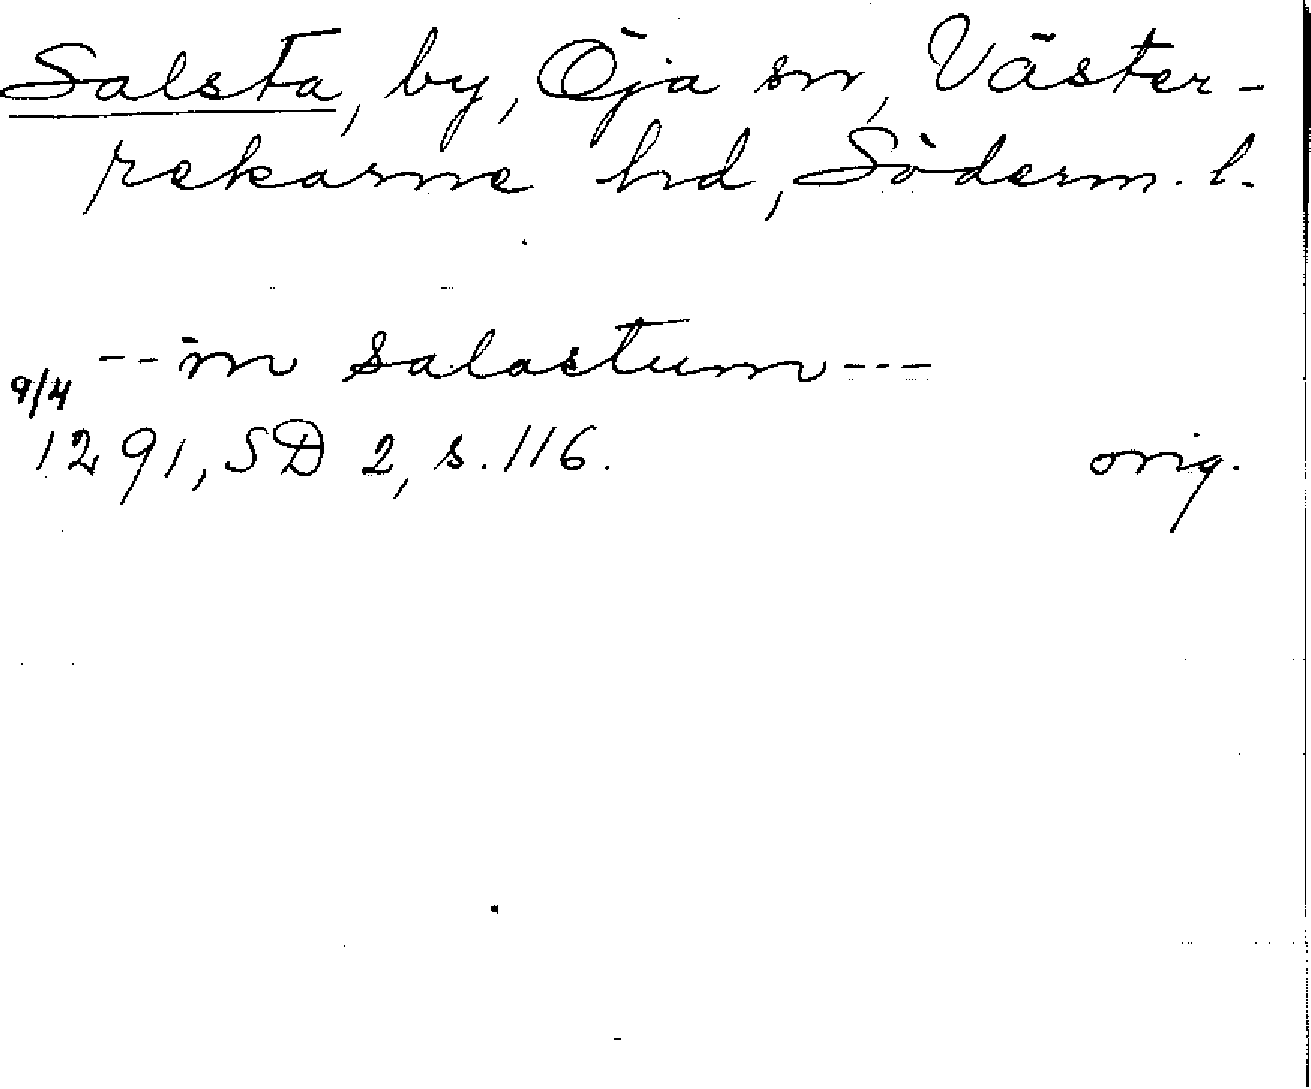 Salsta, by, Öja sn, Väster-
rekarne hd, Söderm. l.
-- in salastum ---
9/4
1291, SD 2, s. 116. orig.